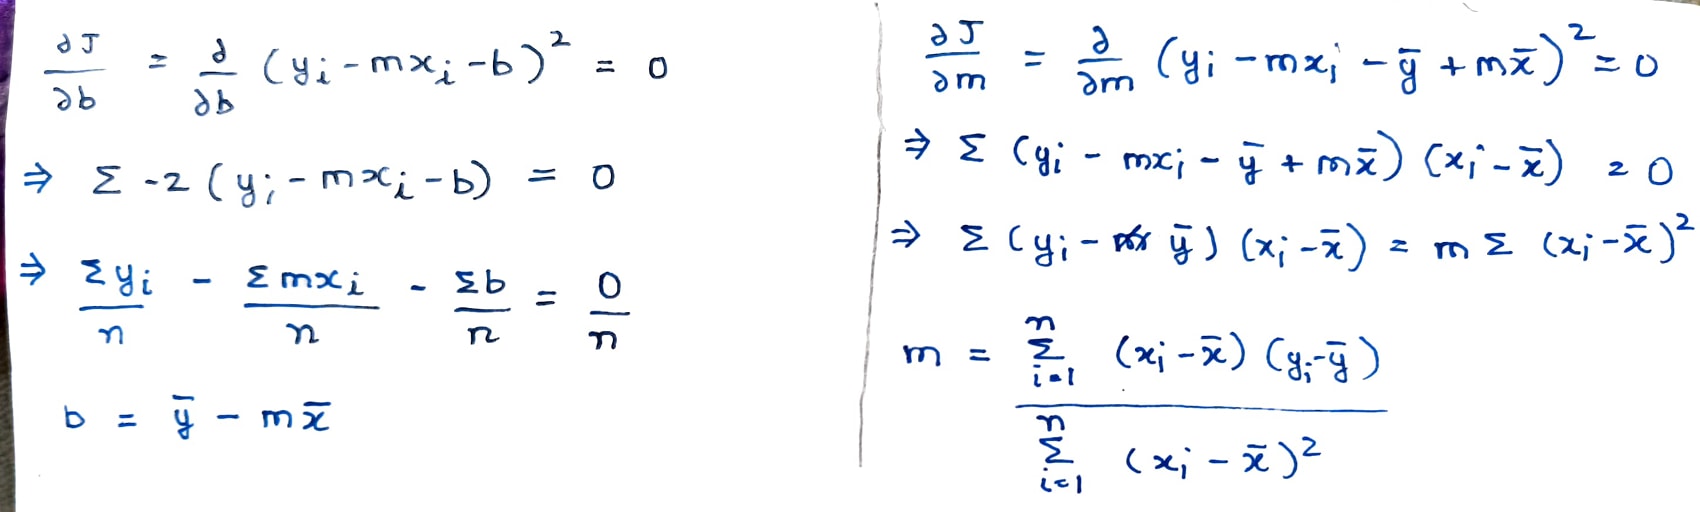 ∂J/∂b = ∂/∂b (yi - mxi - b)² = 0
⇒ Σ -2 (yi - mxi - b) = 0
⇒ Σyi/n - Σmxi/n - Σb/n = 0/n
b = ȳ - mx̄
∂J/∂m = ∂/∂m (yi - mxi - ȳ + mx̄)² = 0
⇒ Σ (yi - mxi - ȳ + mx̄) (xi - x̄) = 0
⇒ Σ (yi - ȳ) (xi - x̄) = m Σ (xi - x̄)²
m = n Σ i=1 (xi - x̄) (yi - ȳ)
n Σ i=1 (xi - x̄)²